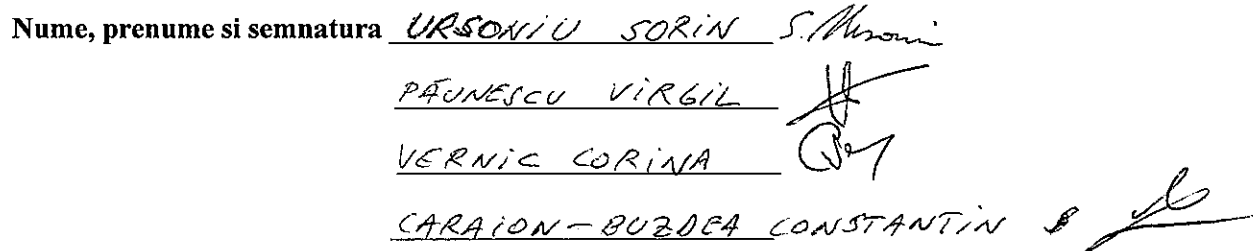 Nume, prenume si semnatura URSONIU SORIN S. Ursoniu
PĂUNESCU VIRGIL
VERNIC CORINA
CARAION-BUZDEA CONSTANTIN